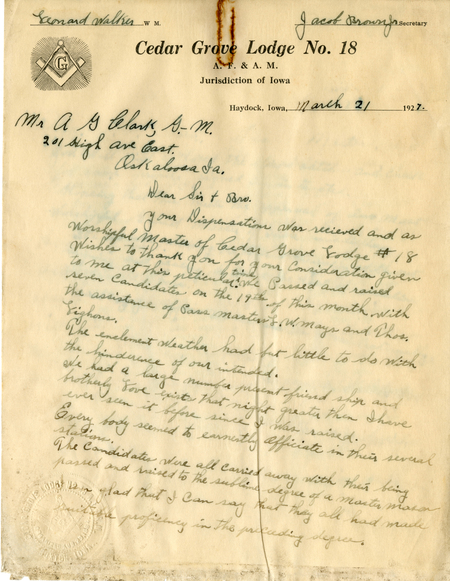 Leonard Walker W M. Jacob Brown Jr Secretary
G
Cedar Grove Lodge No. 18
A. F. & A. M.
Jurisdiction of Iowa
Haydock, Iowa, March 21 1927.
Mr A G Clark, G-M.
201 High Ave East.
Oskaloosa Ia.
Dear Sir & Bro.
Your Dispensation was recieved and as
Worshipful Master of Cedar Grove Lodge # 18
Wishes to thank you for your Consideration given
to me at this time. We Passed and raised
seven Candidates on the 19th of this month with
the assistance of Pass master and Thos.
The enclement Weather had but little to do with
the hinderence of our intended.
We had a large number present friend ship and
brotherly Love exists that night greater then I have
ever seen it before since I was raised.
Every body seemed to earnestly officiate in their several
stations.
The Candidates were all carried away with their being
passed and raised to the sublime degree of a Master Mason
I am glad that I can say that they all had made
proficiency in the preceding degree.